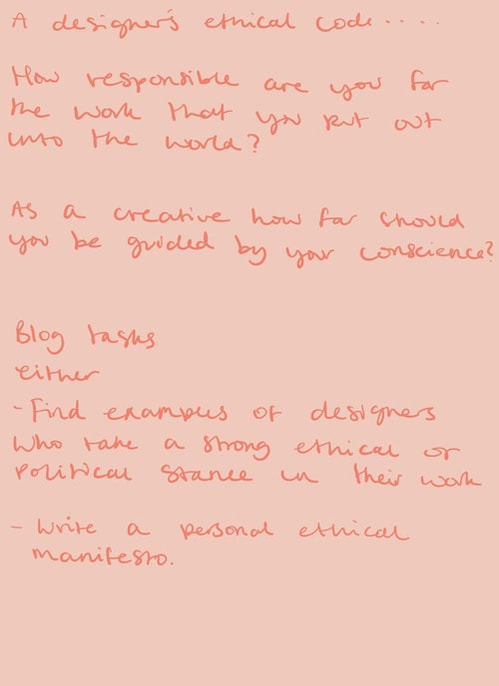 A designer's ethical code.....
How responsible are you for
the work that you put out
into the world?
As a creative how far should
you be guided by your conscience?
Blog tasks
either
- Find examples of designers
who take a strong ethical or
political stance in their work
- Write a personal ethical
manifesto.